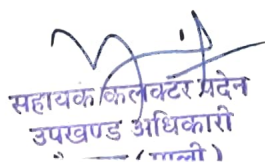 सहायक कलक्टर पदेन
उपखण्ड अधिकारी
(पाली)